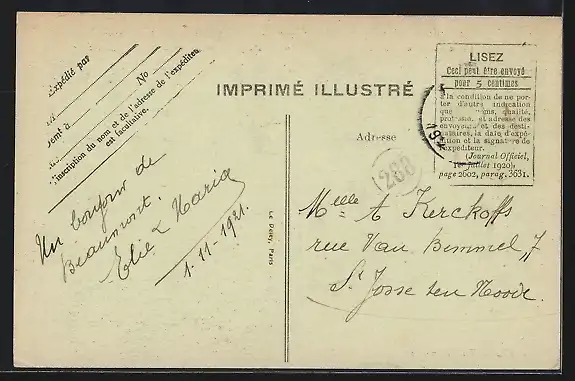 Expédié par
No
L'inscription du nom et de l'adresse de l'expéditeur
est facultative.
Un bonjour de
Beaumont.
Elie & Maria
1-11-1921.
IMPRIMÉ ILLUSTRÉ
LISEZ
Ceci peut être envoyé
pour 5 centimes
à la condition de ne por-
ter d'autre indication
que noms, qualité,
profession et adresse des
envoyeurs et des desti-
nataires, la date d'expé-
dition et la signature de
l'expéditeur.
(Journal Officiel,
1er juillet 1920)
page 2602, parag. 3631.
192
288
Adresse
Melle A Kerckoffs
rue Van Bemmel, 7
St Josse ten Noode.
Le Deley, Paris